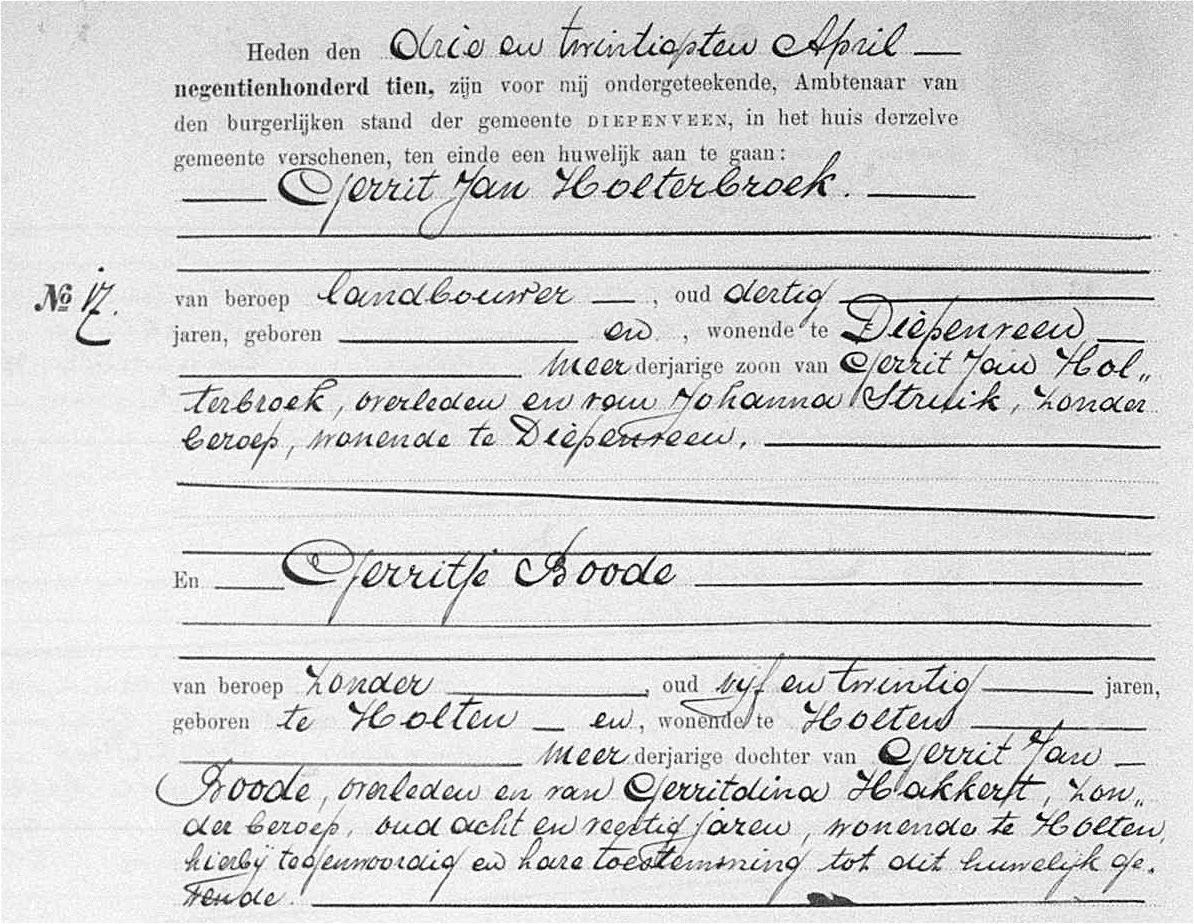 Heden den drie en twintigsten April
negentienhonderd tien, zijn voor mij ondergeteekende, Ambtenaar van
den burgerlijken stand der gemeente DIEPENVEEN, in het huis derzelve
gemeente verschenen, ten einde een huwelijk aan te gaan:
Gerrit Jan Holterbroek.
No 17.
van beroep landbouwer, oud dertig
jaren, geboren en, wonende te Diepenveen,
meerderjarige zoon van Gerrit Jan Hol„
terbroek, overleden en van Johanna Struik, zonder
beroep, wonende te Diepenveen.
En Gerritje Boode
van beroep zonder, oud vijf en twintig jaren,
geboren te Holten en, wonende te Holten
meerderjarige dochter van Gerrit Jan
Boode, overleden en van Gerritdina Hakkert, zon„
der beroep, oud acht en veertig jaren, wonende te Holten,
hierbij tegenwoordig en hare toestemming tot dit huwelijk ge„
vende.